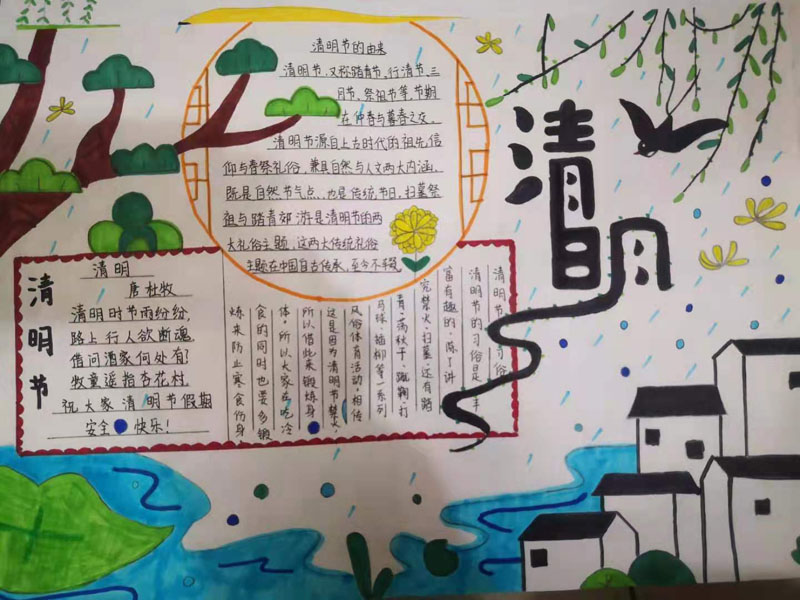 清明
清明节的由来
清明节,又称踏青节、行清节、三
月节、祭祖节等,节期
在仲春与暮春之交。
清明节源自上古时代的祖先信
仰与春祭礼俗,兼具自然与人文两大内涵,
既是自然节气点,也是传统节日,扫墓祭
祖与踏青郊游是清明节的两
大礼俗主题,这两大传统礼俗
主题在中国自古传承,至今不辍
清明节
清明
唐 杜牧
清明时节雨纷纷,
路上行人欲断魂。
借问酒家何处有?
牧童遥指杏花村。
祝大家清明节假期
安全 快乐!
清明节的习俗
清明节的习俗是丰
富有趣的,除了讲
究禁火、扫墓,还有踏
青、荡秋千、蹴鞠、打
马球、插柳等一系列
风俗体育活动。相传
这是因为清明节禁火,
所以借此来锻炼身
体。所以大家在吃冷
食的同时也要多锻
炼来防止寒食伤身。